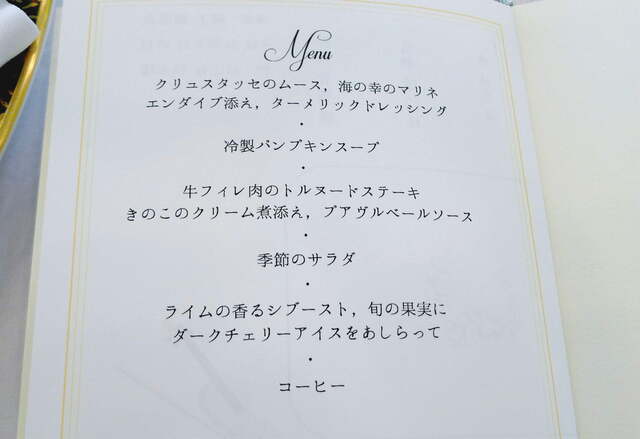 Menu
クリュスタッセのムース，海の幸のマリネ
エンダイブ添え，ターメリックドレッシング
・
冷製パンプキンスープ
・
牛フィレ肉のトルヌードステーキ
きのこのクリーム煮添え，プアヴルベールソース
・
季節のサラダ
・
ライムの香るシブースト，旬の果実に
ダークチェリーアイスをあしらって
・
コーヒー